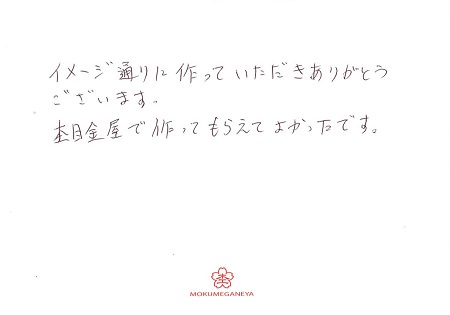 イメージ通りに作っていただきありがとう
ございます。
杢目金屋で作ってもらえてよかったです。
MOKUMEGANEYA